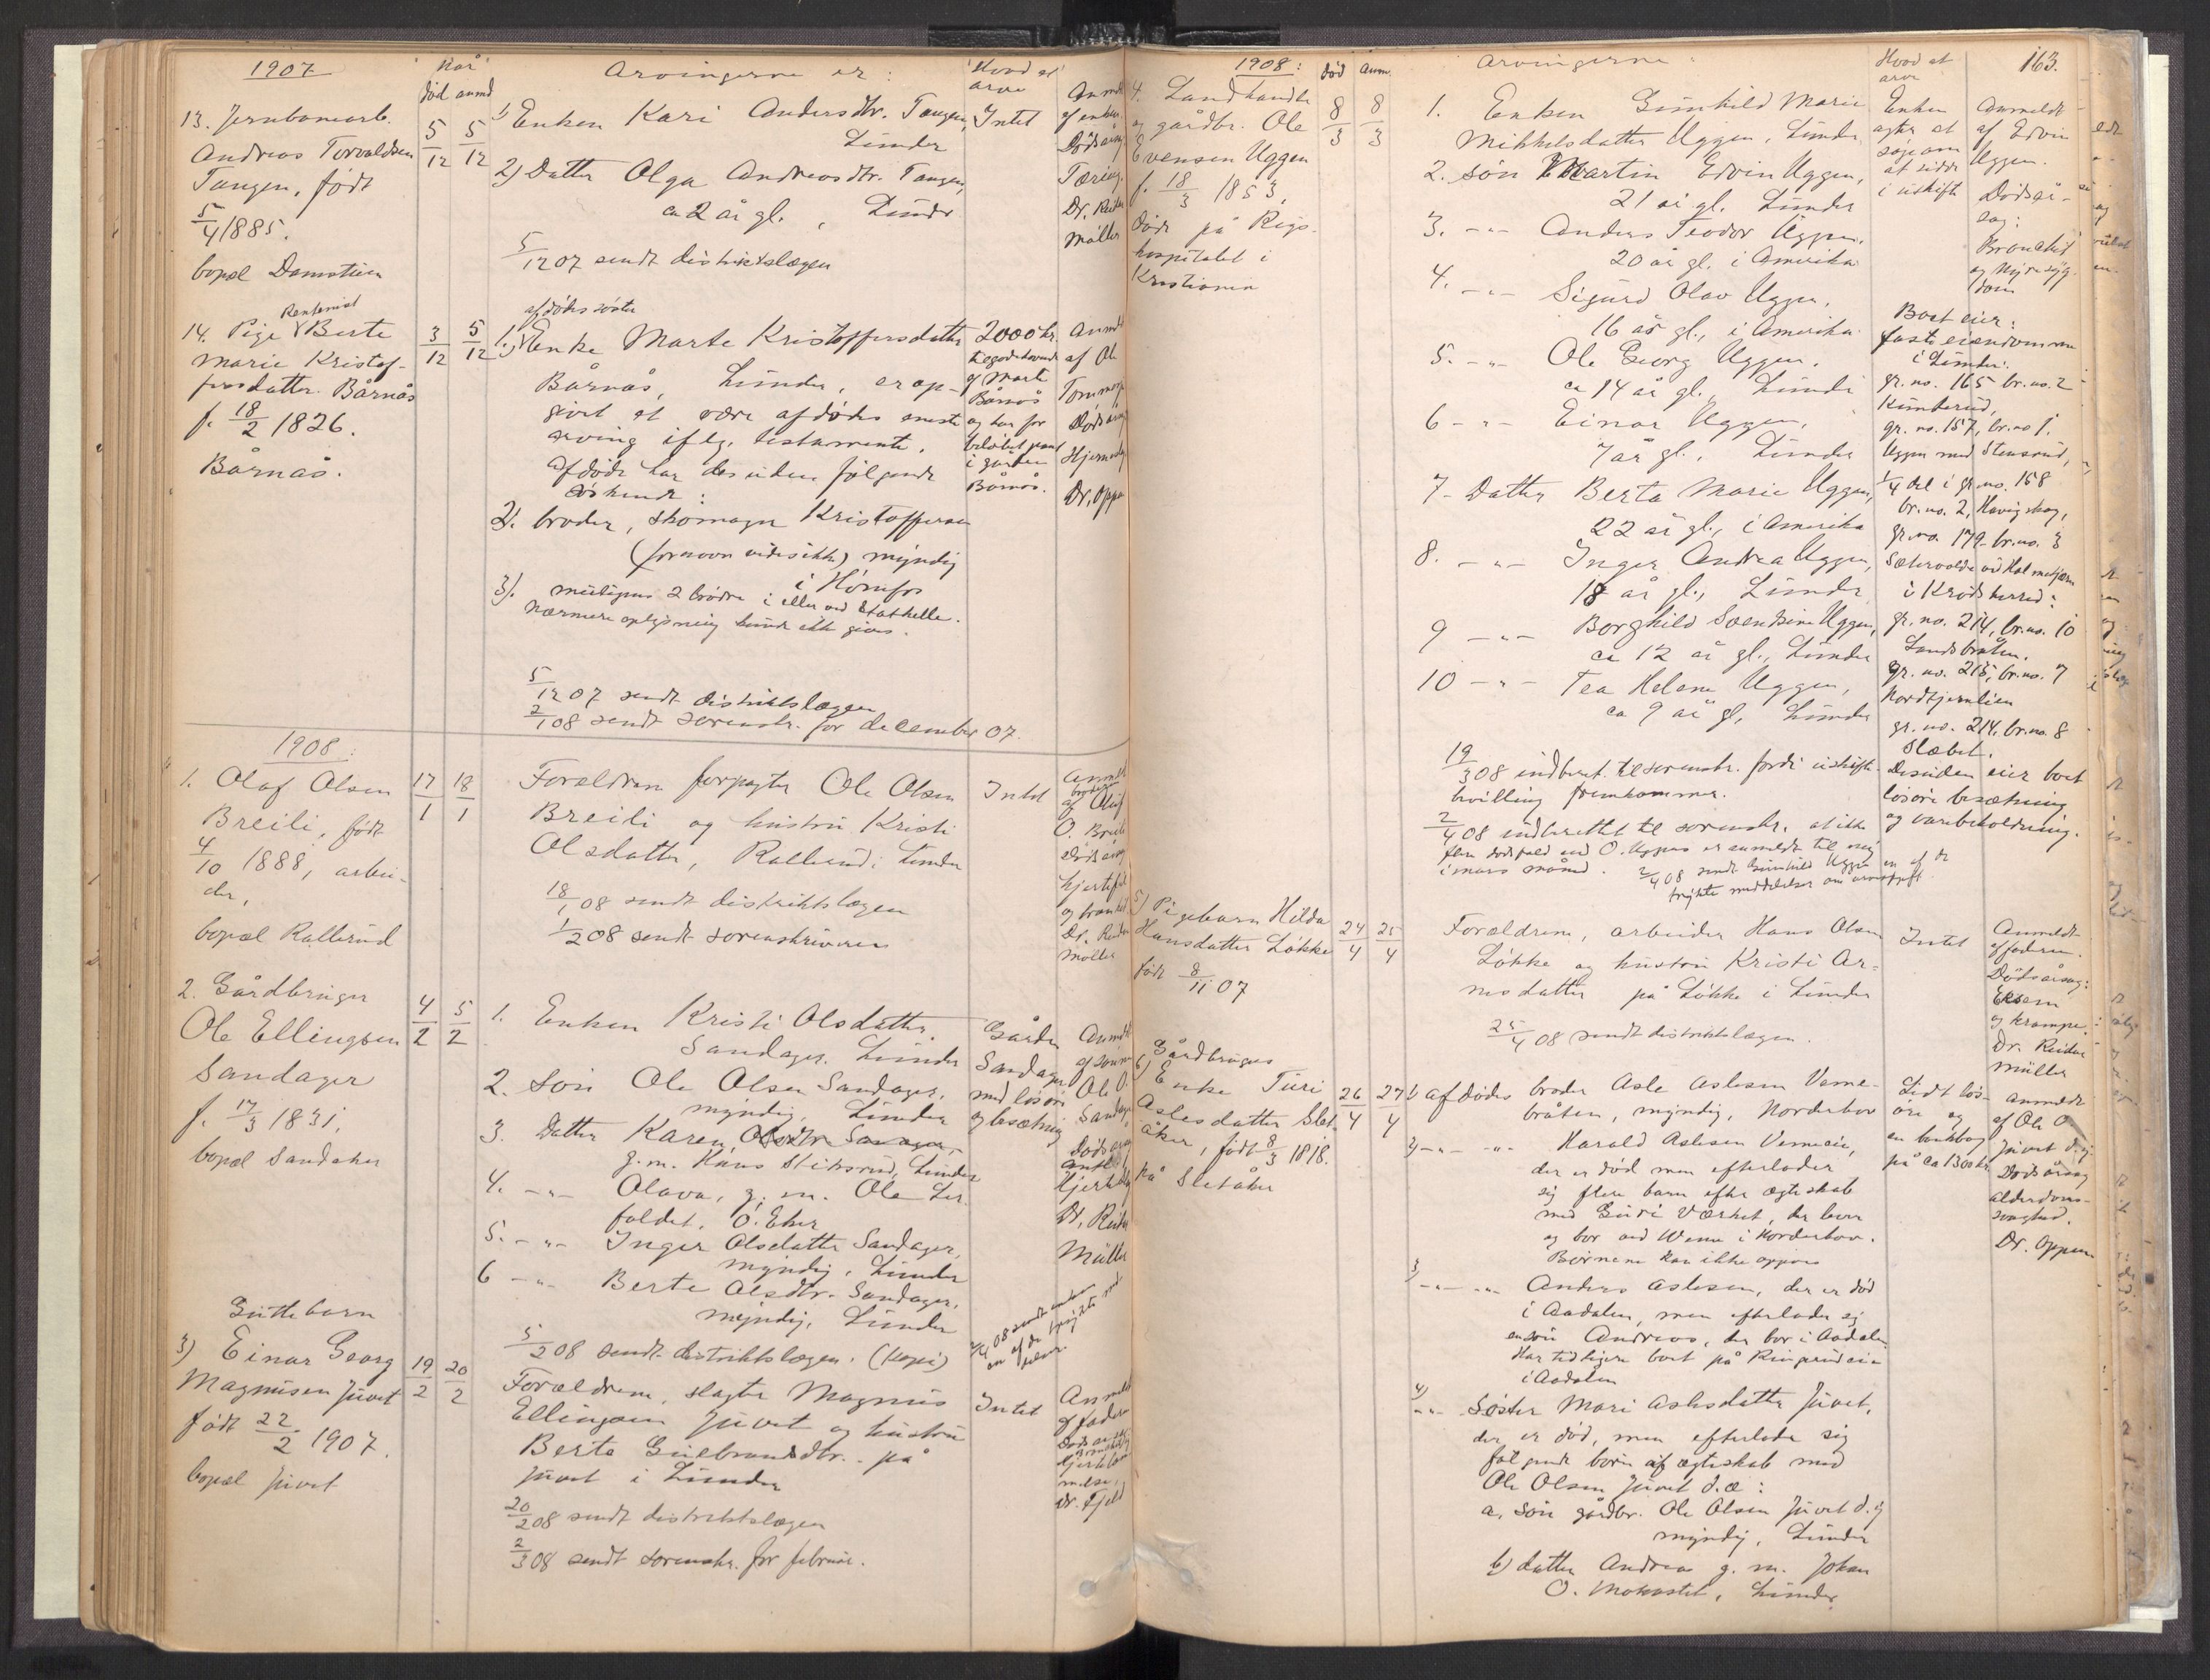 1907
Når
død anmd
Arvingerne er:
Hvad at
arve
13. Jernbanearb.
Andreas Torvaldsen
Tangen, født
5/4 1885.
bopæl Damstuen
5/12
5/12
1) Enken Kari Andersdtr. Tangen,
Lunder
2) Datter Olga Andreasdtr. Tangen,
ca 2 år gl., Lunder
5/12 07 sendt distriktslægen
Intet
Anmdt
af enken
Dødsårsag
Tæring.
Dr. Reidar
Müller
Rentenist
14. Pige Berte
Marie Kristof-
fersdatter Bårnås
f. 18/2 1826.
Bårnås.
3/12
5/12
afdødes søster
1. Enke Marte Kristoffersdatter
Bårnås, Lunder, er op-
givet at være afdødes eneste
arving iflg. testamente.
Afdøde har desuden følgende
søskende:
2). broder, skomager Kristoffersen
(fornavn vides ikke) myndig
i Hønefos
3). muligens 2 brødre i eller ved Stathelle.
Nærmere oplysning kunde ikke gives.
2000 kr.
tilgodehavende
af Marte
Bårnås
og har for
beløbet pant
i gården
Bårnås.
Anmdt
af Ole
Dødsårsag
Dr. Oppen
5/12 07 sendt distriktslægen
2/1 08 sendt sorenskr. for december 07.
1908:
1. Olaf Olsen
Breili, født
4/10 1888, arbei-
der,
bopæl Rallerud
17/1
18/1
Forældrene forpagter Ole Olsen
Breili og hustru Kristi
Olsdatter, Rallerud i Lunder
18/1 08 sendt distriktslægen
1/2 08 sendt sorenskriveren
Intet
Anmdt
broderen
af Oluf
O. Breili
Dødsårsag
hjertefeil
Dr. Reidar
Müller
2. Gårdbruger
Ole Ellingsen
Sandager
f. 17/3 1831,
bopæl Sandaker
4/2
5/2
1. Enken Kristi Olsdatter
Sandager, Lunder
2. Søn Ole Olsen Sandager,
myndig, Lunder
3. Datter Karen Olsdtr. Sandager,
g. m. Hans Stiksrud, Lunder
4. -"- Olava, g. m. Ole Ler-
foldet, Ø. Eker
5. -"- Inger Olsdatter Sandager,
myndig, Lunder
6 -"- Berte Olsdtr. Sandager,
myndig, Lunder
5/2 08 sendt distriktslægen. (kopi)
Gården
Sandager
med løsøre
og besætning
Anmdt
af sønnen
Ole O.
Sandager
Dødsårsag
Dr. Reidar
Müller
Gutte barn
3) Einar Georg
Magnusen Juvet
født 22/2 1907.
bopæl Juvet
19/2
20/2
Forældrene, slagter Magnus
Ellingsen Juvet og hustru
Berte Gulbrandsdtr. på
Juvet i Lunder
20/2 08 sendt distriktslægen
2/3 08 sendt sorenskr. for februar.
Intet
Anmeldt
af faderen
Dødsårsag
Dr. Fjeld
1908:
død
Anm.
Arvingerne:
Hvad at
arve
163.
4. Landhandler
og gårdbr. Ole
Evensen Uggen
f. 18/3 1853,
døde på Rigs-
hospitalet i
Kristiania
8/3
8/3
1. Enken Gunhild Marie
Mikkelsdatter Uggen, Lunder
2. Søn Martin Edvin Uggen,
21 år gl. Lunder
3. -"- Anders Teodor Uggen,
20 år gl. i Amerika
4. -"- Sigurd Olav Uggen,
16 år gl., i Amerika
5. -"- Ole Georg Uggen,
ca 14 år gl., Lunder
6 -"- Einar Uggen,
7 år gl., Lunder
7 - Datter Berta Marie Uggen,
22 år gl., i Amerika
8. -"- Inger Andrea Uggen,
18 år gl., Lunder
9 -"- Borghild Sventine Uggen,
ca 12 år gl., Lunder
10 -"- Tea Helene Uggen,
ca 9 år gl, Lunder
19/3 08 indberet. til sorenskr. fordi uskifte-
bevilling fremkommer.
2/4 08 indberettet til sorenskr. at ikke
flere dødsfald end O. Uggens er anmeldt til mig
i mars måned. 2/4 08 sendt Gunhild Uggen en af de
trykte meddelelser om arveopgjft
Enken
agter at
søge om
at sidde
i uskifte
Anmeldt
af Edvin
Uggen.
Dødsår-
sag:
Bronchit
og Nyresyg-
dom
Boet eier:
faste eiendommer
i Lunder:
gr. no. 165 br. no. 2
Kinnerud,
gr. no. 157, br. no 1.
Uggen med Stensrud,
1/4 del i gr. no. 158
br. no. 2, Havigskog,
gr. no. 179 br. no. 3
Sætervolden ved Holmetjern
i Krødsherred:
gr. no. 214, br. no. 10
Landsbråten,
gr. no. 215, br. no. 7
Nordtjernlien
gr. no. 214, br. no. 8
Slæbet.
Desuden eier boet
løsøre besætning
og varebeholdning.
5) Pigebarn Hilda
Hansdatter Løkke
født 8/11 07
24/4
25/4
Forældrene, arbeider Hans Olsen
Løkke og hustru Kristi Ar-
nesdatter på Løkke i Lunder
25/4 08 sendt distriktslægen.
Intet
Anmeldt
af faderen.
Dødsårsag:
Eksem
og krampe.
Dr. Reidar
Müller
Gårdbrugers
6) Enke Turi
Aslesdatter Slet-
åker, født 8/3 1818.
på Sletåker
26/4
27/4
1) afdødes broder Asle Aslesen Verne-
bråten, myndig, Norderhov
2) -"- -"- Harald Aslesen Verneeie,
der er død men efterlader
sig flere barn efter ægteskab
med Guri Værket, der lever
og bor ved Veme i Norderhov.
Børnene kan ikke oppgives
3) -"- -"- Anders Aslesen, der er død
i Aadalen, men efterlader sig
en søn Andreas, der bor i Aadalen
Har tidligere boet på Ringerudeie
i Aadalen
4) -"- Søster Mari Aslesdatter Juvet,
der er død, men efterlader sig
følgende børn af ægteskab med
Ole Olsen Juvet d. æ:
a, Søn gårdbr. Ole Olsen Juvet d. y
myndig, Lunder
b) datter Andrea g. m. Johan
O. Mokastet, Lunder
Lidt løs-
øre og
en bankbog
på ca 1300 kr.
anmeldt
af Ole O
Juvet d. y
Dødsårsag
alderdoms-
svaghed.
Dr. Oppen